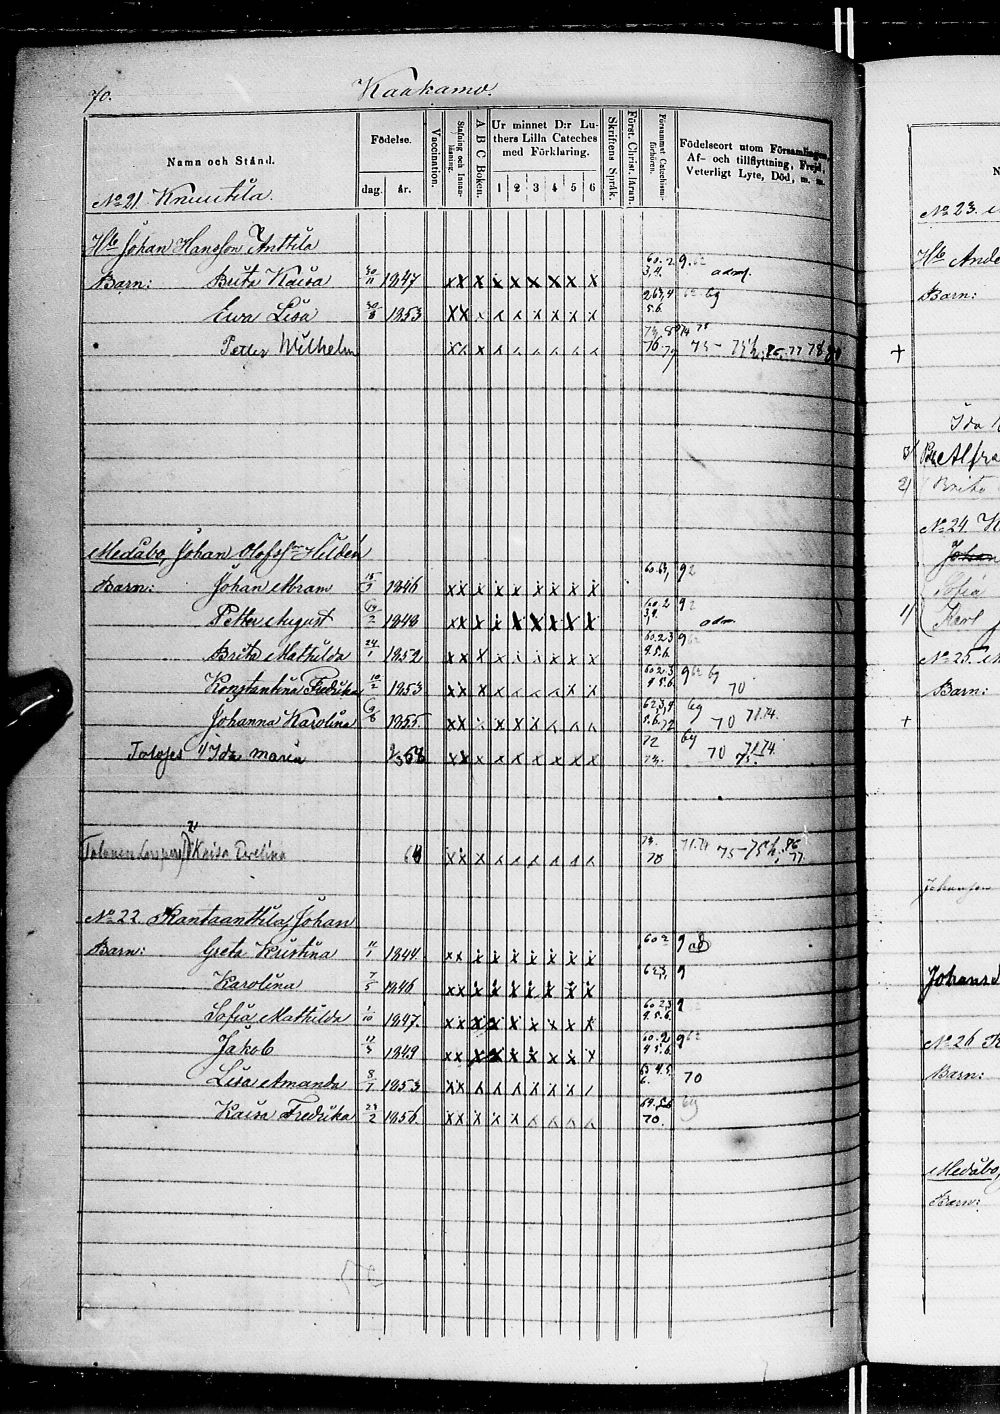 70. Kaakamo.
Namn och Stånd.
Födelse.
dag. år.
Vaccination.
Stafning och Innan-läsning.
A B C Boken.
Ur minnet D:r Lu-
thers Lilla Cateches
med Förklaring.
1 2 3 4 5 6
Skriftens Språk.
Först. Christ. läran.
Försummat Catechismi-förhören.
Födelseort utom Församlingen,
Af- och tillflyttning, Frejd,
Veterligt Lyte, Död, m. m.
No 21 Knuutila.
Hb Johan Hansson Anttila
Barn: Brita Kaisa 30/11 1847 x x x x x x x x x 60.2 3,4. 9 62 adm.
Ewa Lisa 30/8 1853 x x x x x x x x x 263,4 5.6. 62 69
Petter Wilhelm x x x x x x x x x 76 77 75- 75 h, 86, 77 78
Medåbo, Johan Olofsson Helden
Barn: Johan Abram 18/9 1846 x x x x x x x x x 60.63, 92
Petter August 1848 x x x x x x x x x 60.2 3,4. 92 adm.
Brita Mathilda 24/1 1852 x x x x x x x x x 60.2.3 4.5.6. 9 62
Konstantina Fredrika 10/2 1853 x x x x x x x x x 60 2.3 4 5.6. 9 62 69 70
Johanna Karolina 1855. x x x x x x x x x 62.3,4 5.6. 72 69 70 71.74.
Tolojes 1/ Ida Maria 68 x x x x x x x x x 72 73. 69 70 71.74 75.
2/ Kaisa Evelina 68 x x x x x x x x x 73. 78 71.74 75-75 h, 86 77
No 22. Rantaanttila, Johan
Barn: Greta Kristina 11/1 1844 x x x x x x x x x 60 2 9 ad
Karolina 7/5 1846 x x x x x x x x x 62.3. 9
Sofia Mathilda 1/10 1847. x x x x x x x x x 60 2.3 4.5.6. 9
Jakob 11/3 1849 x x x x x x x x x 60.2 4 5.6. 9 62
Lisa Amanda 8/7 1853 x x x x x x x x 63 4.5 6. 70
Kaisa Fredrika 23/2 1856. x x x x x x x x x 64.5.6 70. 69
No 23.
Hb Ande
Barn:
+
Ida
3/ Alfra
2/ Brita
No 24.
Johan
Sofia
1/ Karl
No 25.
Barn:
+
Johansson
Johans
No 26
Barn:
Medåbo,
Barn: